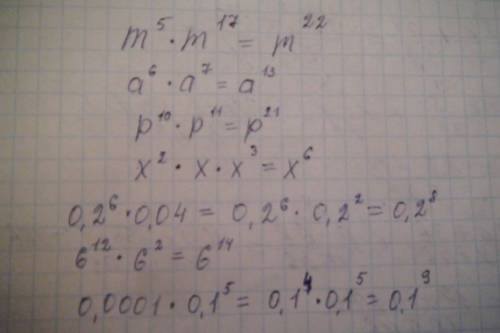 m⁵ · m¹⁷ = m²²
a⁶ · a⁷ = a¹³
p¹⁰ · p¹¹ = p²¹
x² · x · x³ = x⁶
0,2⁶ · 0,04 = 0,2⁶ · 0,2² = 0,2⁸
6¹² · 6² = 6¹⁴
0,0001 · 0,1⁵ = 0,1⁴ · 0,1⁵ = 0,1⁹